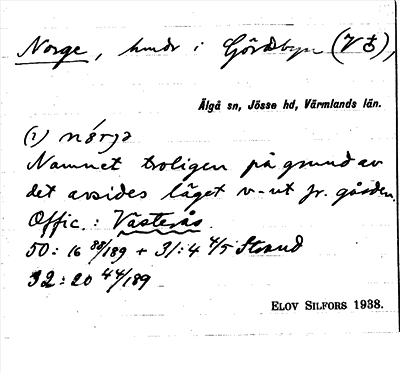 Norge, hmdr i Gördsbyn (7 ),
Älgå sn, Jösse hd, Värmlands län.
(1) nórjə
Namnet troligen på grund av
det avsides läget v-ut fr. gården.
Offic.: Västerås.
50: 16 88/189 + 31:4 4/5 Strand
32:20 44/189
ELOV SILFORS 1938.